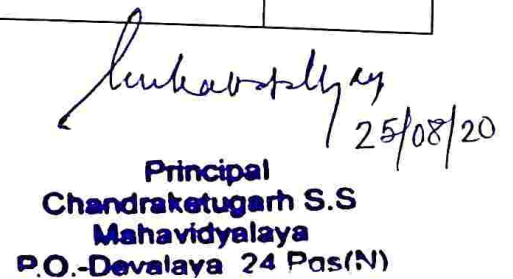 25/08/20
Principal
Chandraketugarh S.S
Mahavidyalaya
P.O.-Devalaya 24 Pas(N)